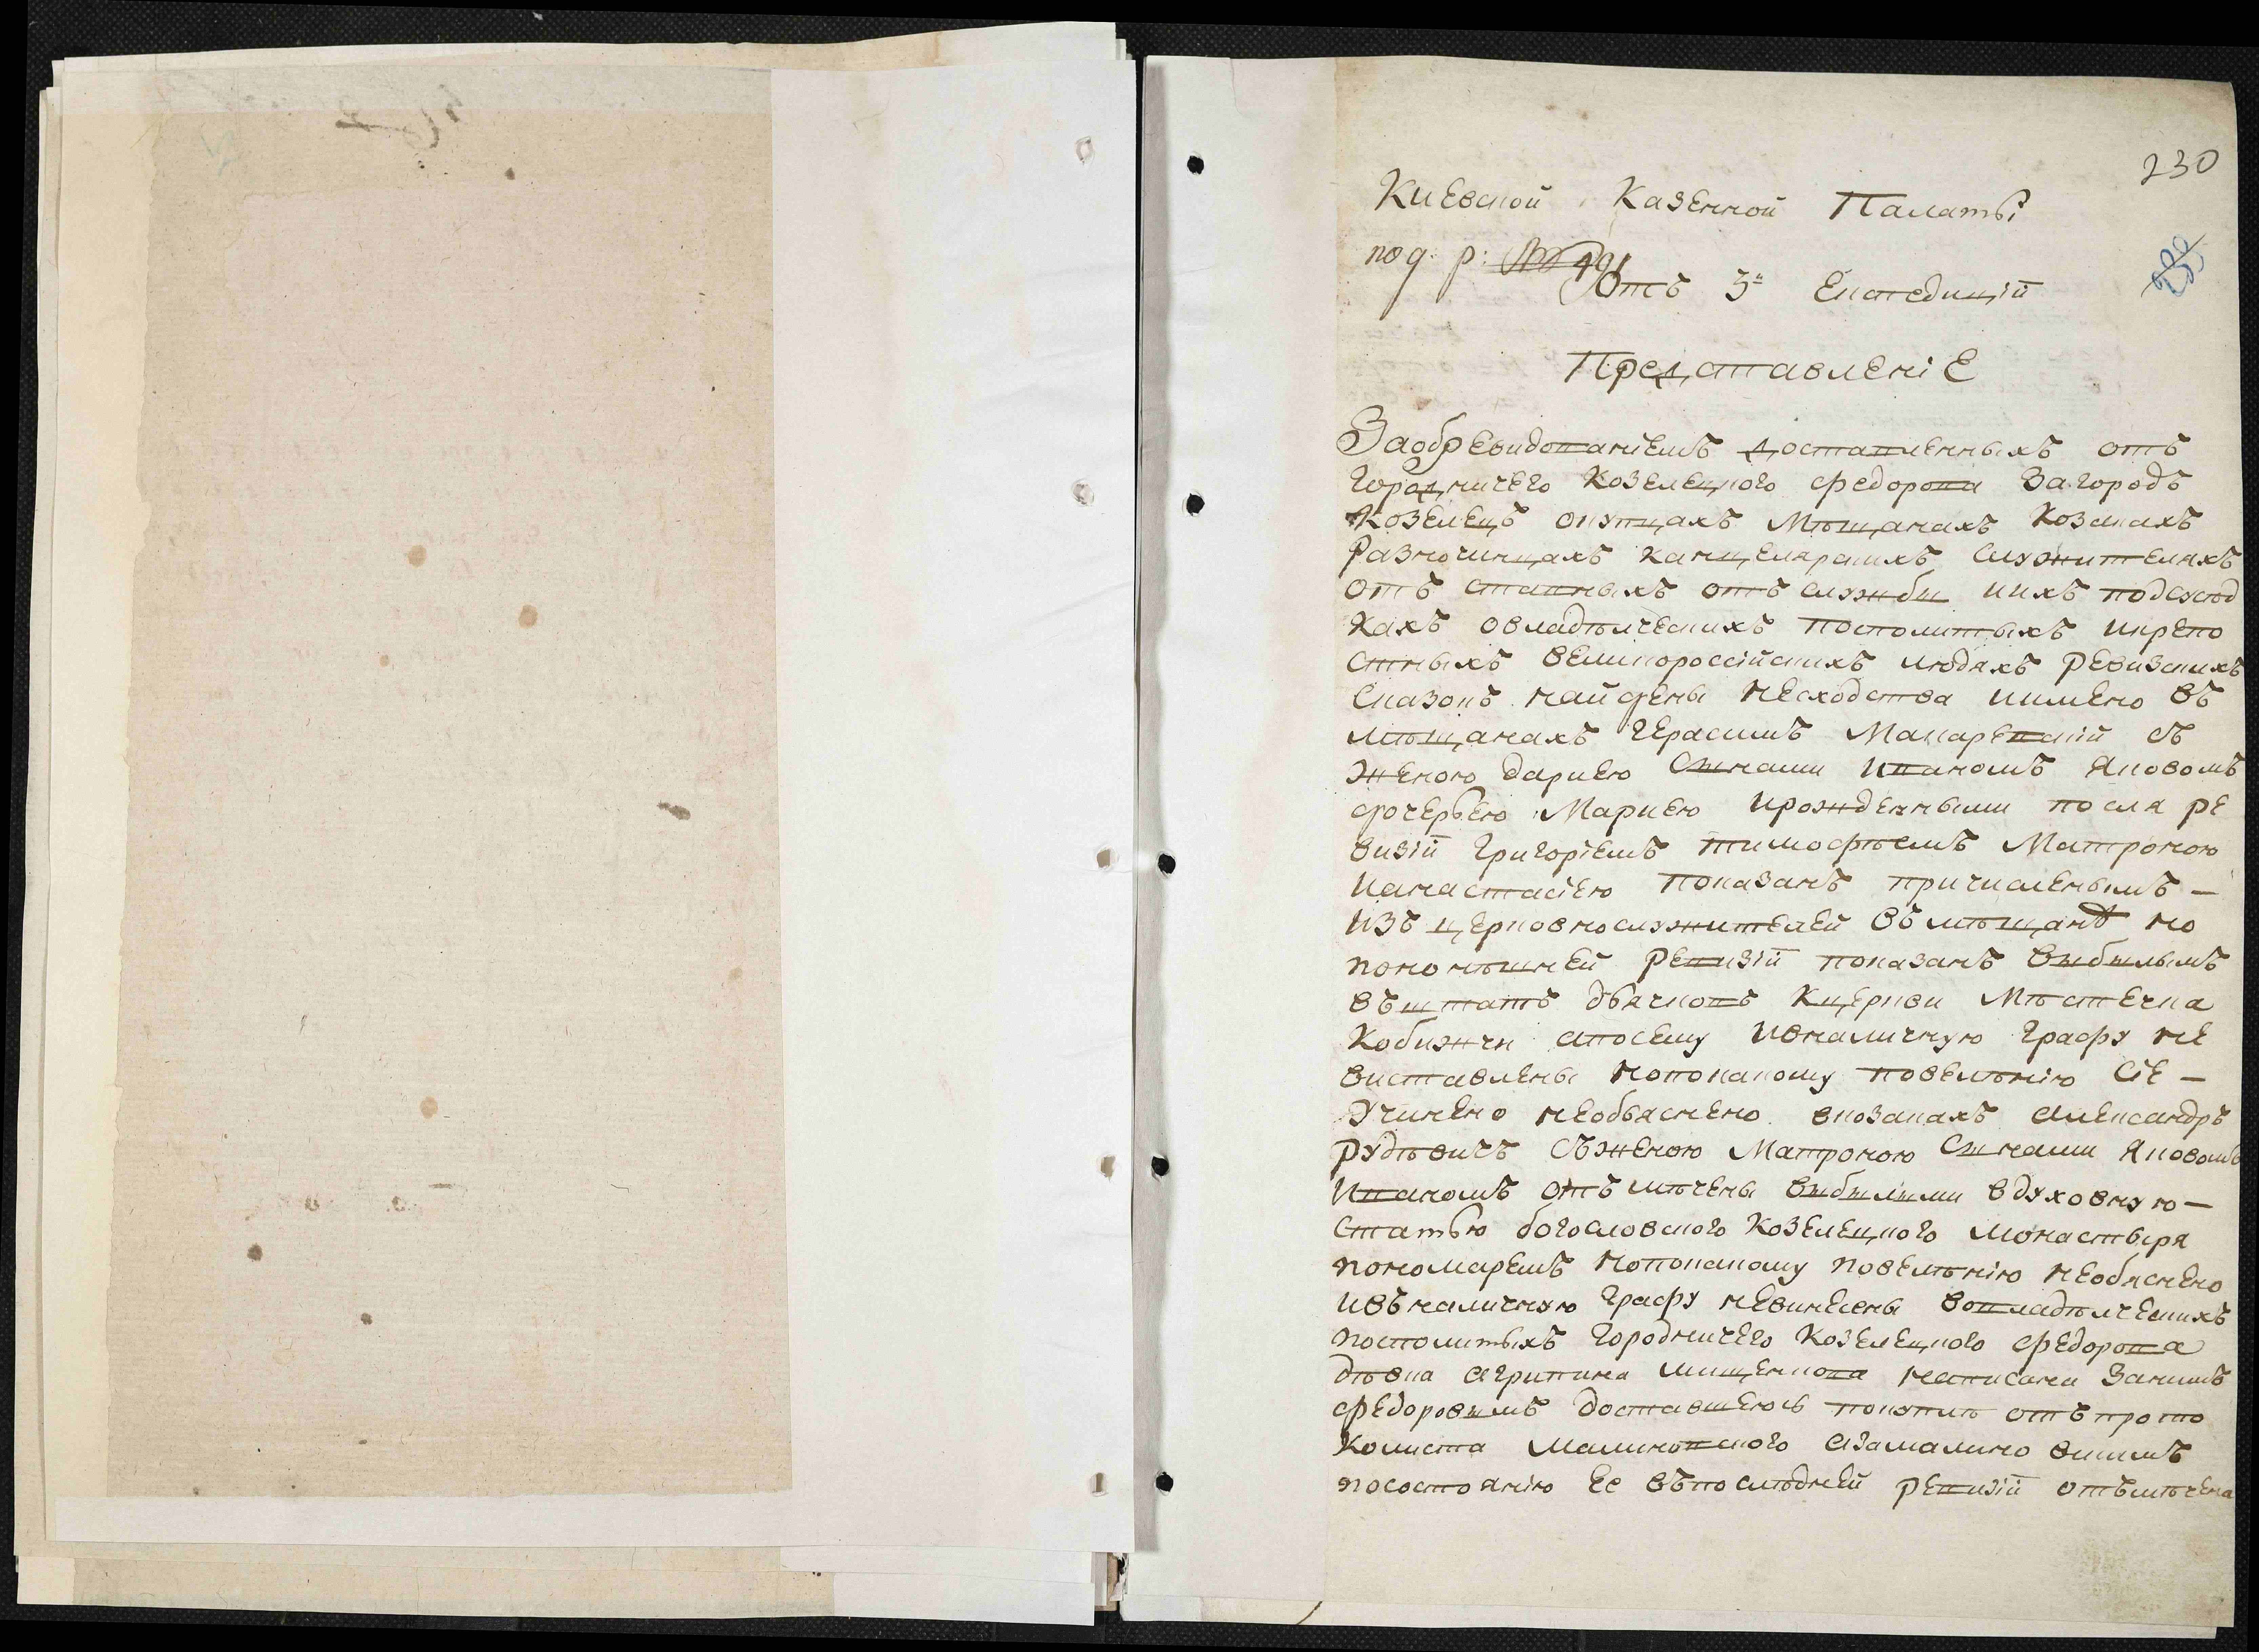 230
Киевской Казенной Палаты
под: р: № 491
Отъ 3й Експедиціи
Представленіе
Заобревидованіемъ доставленныхъ отъ
Городничего Козелецкого Федорова Загородъ
Козелецъ окупцахъ Мѣщанахъ Козакахъ
Разночинцахъ канцелярскихъ служителяхъ
отъ ставныхъ отъ службы иихъ подсусѣд
кахъ овладѣлческихъ посполитыхъ икрепо
стныхъ великороссійскихъ людяхъ ревизскихъ
сказокъ найдены несходства иимено въ
мѣщанахъ Герасимъ Макаревскій съ
женою Дариею Сынами Иваномъ Яковомъ
дочерьею Мариею ирожденными посля ре
визіи Григоріемъ Тимофѣемъ Матроною
иАнастасіею показанъ причисленымъ –
изъ церковнослужителей въ мѣщанѣ но
поконѣшней ревизіи показанъ выбылымъ
въштатъ дьячковъ Кцеркви Мѣстечка
Кобижчи апосему ивналичную графу не
виставлены нопокакому повелѣнію сіе –
учинено необьяснено вкозакахъ Александръ
Рудѣвичъ съженою Матроною Сынами Яковомъ
Иваномъ отъмѣчены выбылыми вдуховную –
Статью богословского Козелецкого Монастыря
пономаремъ нопокакому повелѣнію необяснено
ивъналичную графу невинесены вовладѣлческихъ
посполитыхъ Городничего Козелецкого Федорова
дѣвка Агрипина Мищенкова написана Занимъ
Федоровымъ доставшеюсь покупкѣ отъ прото
колиста Малиновского Азамалино вскимъ
посостоянію Ее въпослѣдней ревизіи отъмѣчена